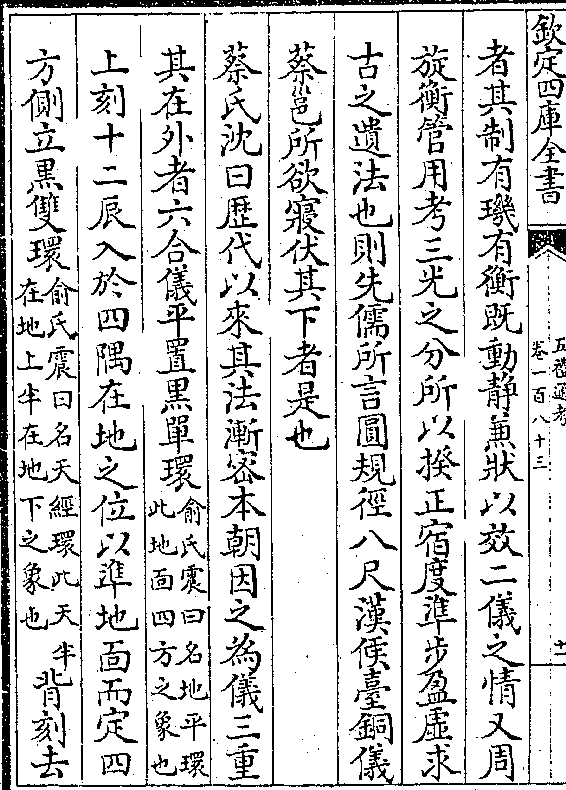 欽定四庫全書
五禮通考
卷一百八十三
十一
者其制有璣有衡既動静兼狀以效二儀之情又周
旋衡管用考三光之分所以揆正宿度準步盈虛求
古之遺法也則先儒所言圓規徑八尺漢候臺銅儀
蔡邕所欲寢伏其下者是也
蔡氏沈曰歴代以來其法漸密本朝因之為儀三重
其在外者六合儀平置黒單環俞氏震曰名地平環此地面四方之象也
上刻十二辰入於四隅在地之位以準地面而定四
方側立黒雙環俞氏震曰名天經環此天半在地上半在地下之象也背刻去